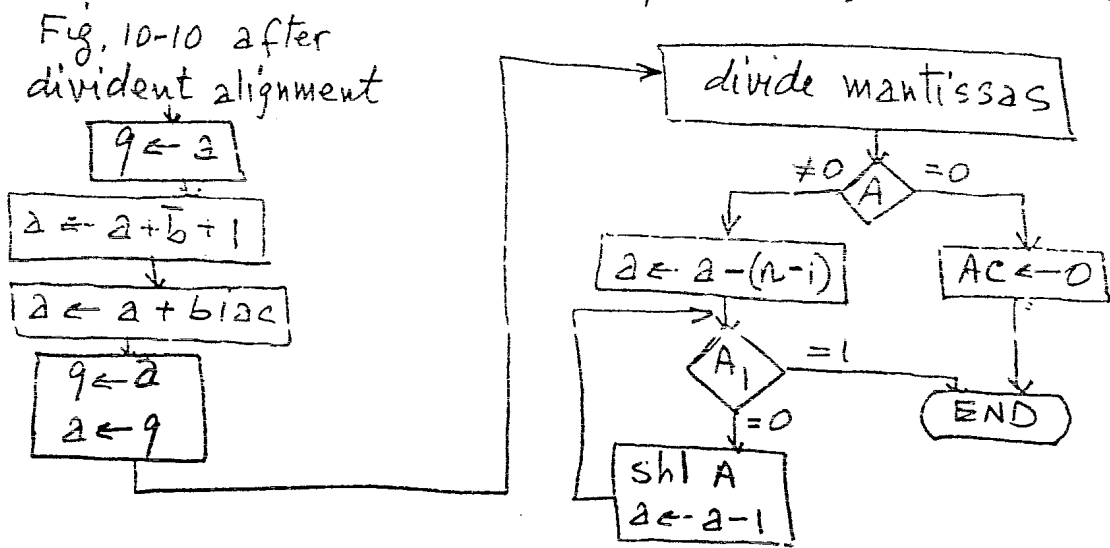 Fig. 10-10 after
divident alignment
q ← a
a ← a + b̄ + 1
a ← a + bias
q ← a
a ← q
divide mantissas
≠0
A
=0
a ← a - (n-i)
AC ← 0
A₁
=1
=0
END
shl A
a ← a - 1